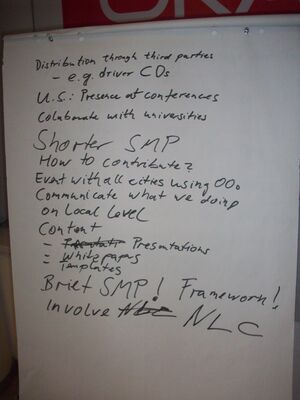 Distribution through third parties
- e.g. driver CDs
U.S.: Presence at conferences
Colaborate with universities
Shorter SMP
How to contribute?
Event with all cities using OOo
Communicate what we doing
on Local Level
Content
- Presentations
= Whitepapers
Templates
Brief SMP! Framework!
Involve NLC